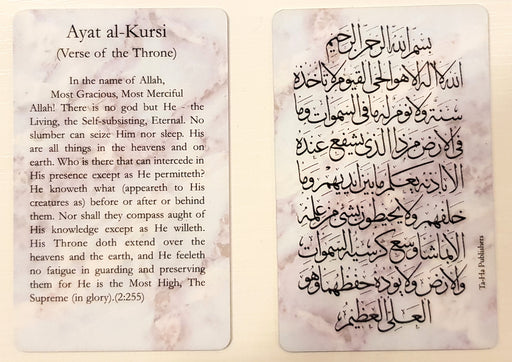 Ayat al-Kursi
(Verse of the Throne)
In the name of Allah,
Most Gracious, Most Merciful
Allah! There is no god but He - the
Living, the Self-subsisting, Eternal. No
slumber can seize Him nor sleep. His
are all things in the heavens and on
earth. Who is there that can intercede in
His presence except as He permitteth?
He knoweth what (appeareth to His
creatures as) before or after or behind
them. Nor shall they compass aught of
His knowledge except as He willeth.
His Throne doth extend over the
heavens and the earth, and He feeleth
no fatigue in guarding and preserving
them for He is the Most High, The
Supreme (in glory).(2:255)
بسم الله الرحمن الرحيم
الله لا اله الا هو الحي القيوم لا تاخذه
سنة ولا نوم له ما في السموات وما
في الارض من ذا الذي يشفع عنده
الا باذنه يعلم ما بين ايديهم وما
خلفهم ولا يحيطون بشئ من علمه
الا بما شاء وسع كرسيه السموات
والارض ولا يوده حفظهما وهو
العلي العظيم
Ta-Ha Publishers